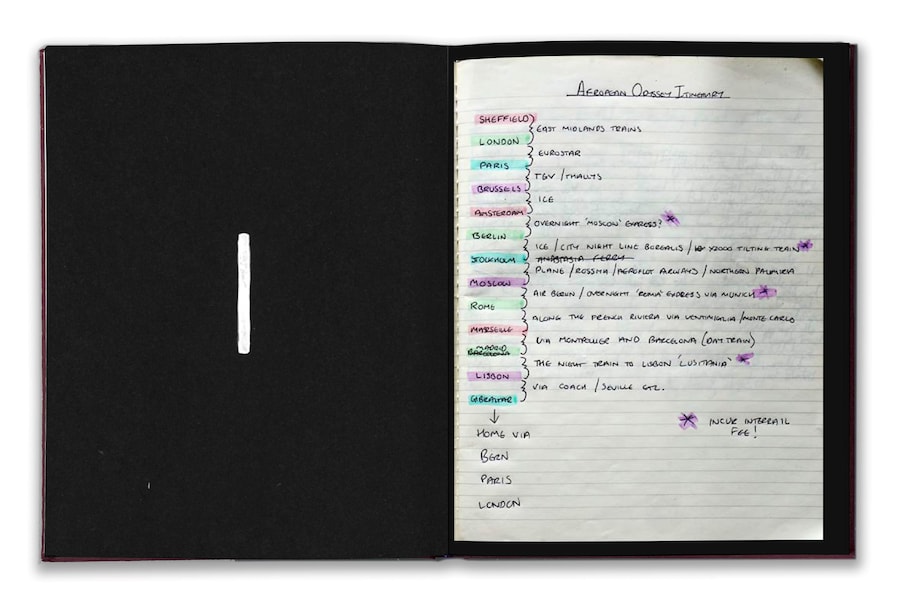 AFROPEAN ODYSSEY ITINERARY
SHEFFIELD
EAST MIDLANDS TRAINS
LONDON
EUROSTAR
PARIS
TGV / THALLYS
BRUSSELS
ICE
AMSTERDAM
OVERNIGHT 'MOSCOW' EXPRESS? *
BERLIN
ICE / CITY NIGHT LINE BOREALIS / X2000 TILTING TRAIN *
STOCKHOLM
ANASTASIA FERRY
PLANE / ROSSIYA / AEROFLOT AIRWAYS / NORTHERN PALMIRA
MOSCOW
AIR BERLIN / OVERNIGHT 'ROMA' EXPRESS VIA MUNICH *
ROME
ALONG THE FRENCH RIVIERA VIA VENTIMIGLIA / MONTE CARLO
MARSEILLE
VIA MONTPELLIER AND BARCELONA (DAY TRAIN)
MADRID
BARCELONA
THE NIGHT TRAIN TO LISBON 'LUSITANIA' *
LISBON
VIA COACH / SEVILLE ETC.
GIBRALTAR
↓
HOME VIA
BERN
PARIS
LONDON
* INCUR INTERRAIL
FEE!